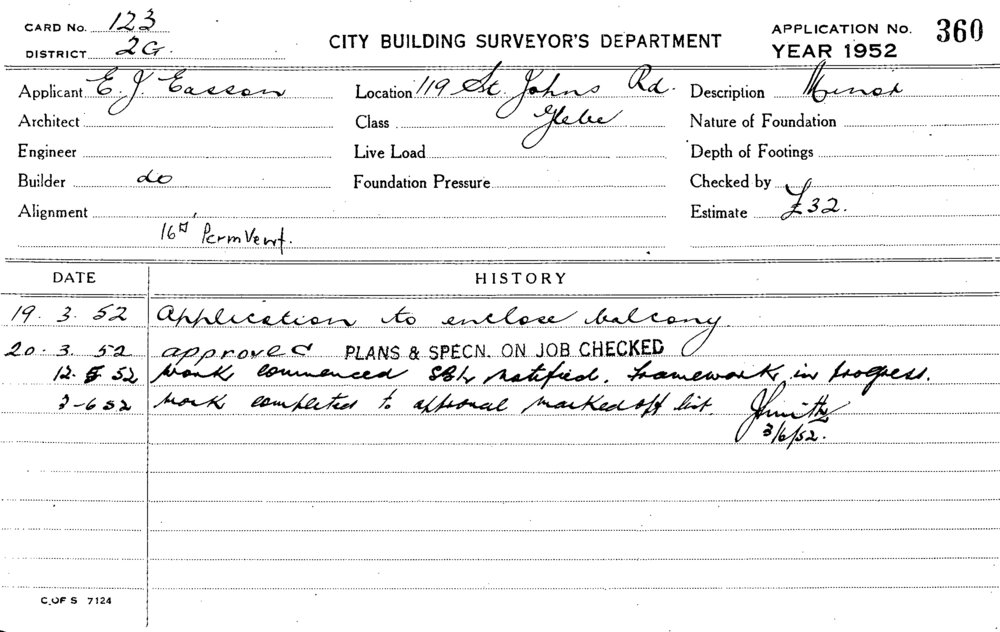 CARD No. 123
DISTRICT 2G.
CITY BUILDING SURVEYOR'S DEPARTMENT
APPLICATION No. 360
YEAR 1952
Applicant E. J. Easson Location 119 St. Johns Rd. Description Minor
Architect Class Glebe Nature of Foundation
Engineer Live Load Depth of Footings
Builder do Foundation Pressure Checked by
Alignment Estimate £32.
16" Perm Vent.
DATE HISTORY
19. 3. 52 Application to enclose balcony
20. 3. 52 approved PLANS & SPECN. ON JOB CHECKED
12. 5 52 Work commenced notified. Framework in progress.
3-6 52 Work completed to approval marked off list JSmith
3/6/52.
C. OF S 7124